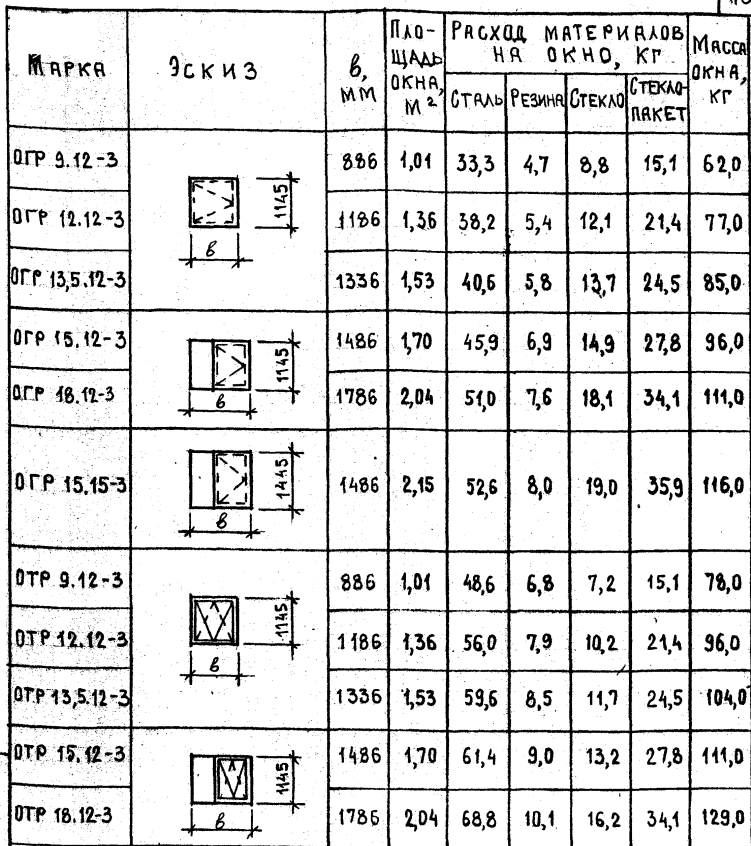 Марка Эскиз в, мм Пло-щадь окна, м² Расход материалов на окно, кг Масса окна, кг
Сталь Резина Стекло Стекло-пакет
ОГР 9.12-3 886 1,01 33,3 4,7 8,8 15,1 62,0
1145
в
ОГР 12.12-3 1186 1,36 38,2 5,4 12,1 21,4 77,0
ОГР 13,5.12-3 1336 1,53 40,6 5,8 13,7 24,5 85,0
ОГР 15.12-3 1486 1,70 45,9 6,9 14,9 27,8 96,0
1145
в
ОГР 18.12-3 1786 2,04 51,0 7,6 18,1 34,1 111,0
ОГР 15.15-3 1486 2,15 52,6 8,0 19,0 35,9 116,0
1445
в
ОТР 9.12-3 886 1,01 48,6 6,8 7,2 15,1 78,0
1145
в
ОТР 12.12-3 1186 1,36 56,0 7,9 10,2 21,4 96,0
ОТР 13,5.12-3 1336 1,53 59,6 8,5 11,7 24,5 104,0
ОТР 15.12-3 1486 1,70 61,4 9,0 13,2 27,8 111,0
1145
в
ОТР 18.12-3 1786 2,04 68,8 10,1 16,2 34,1 129,0